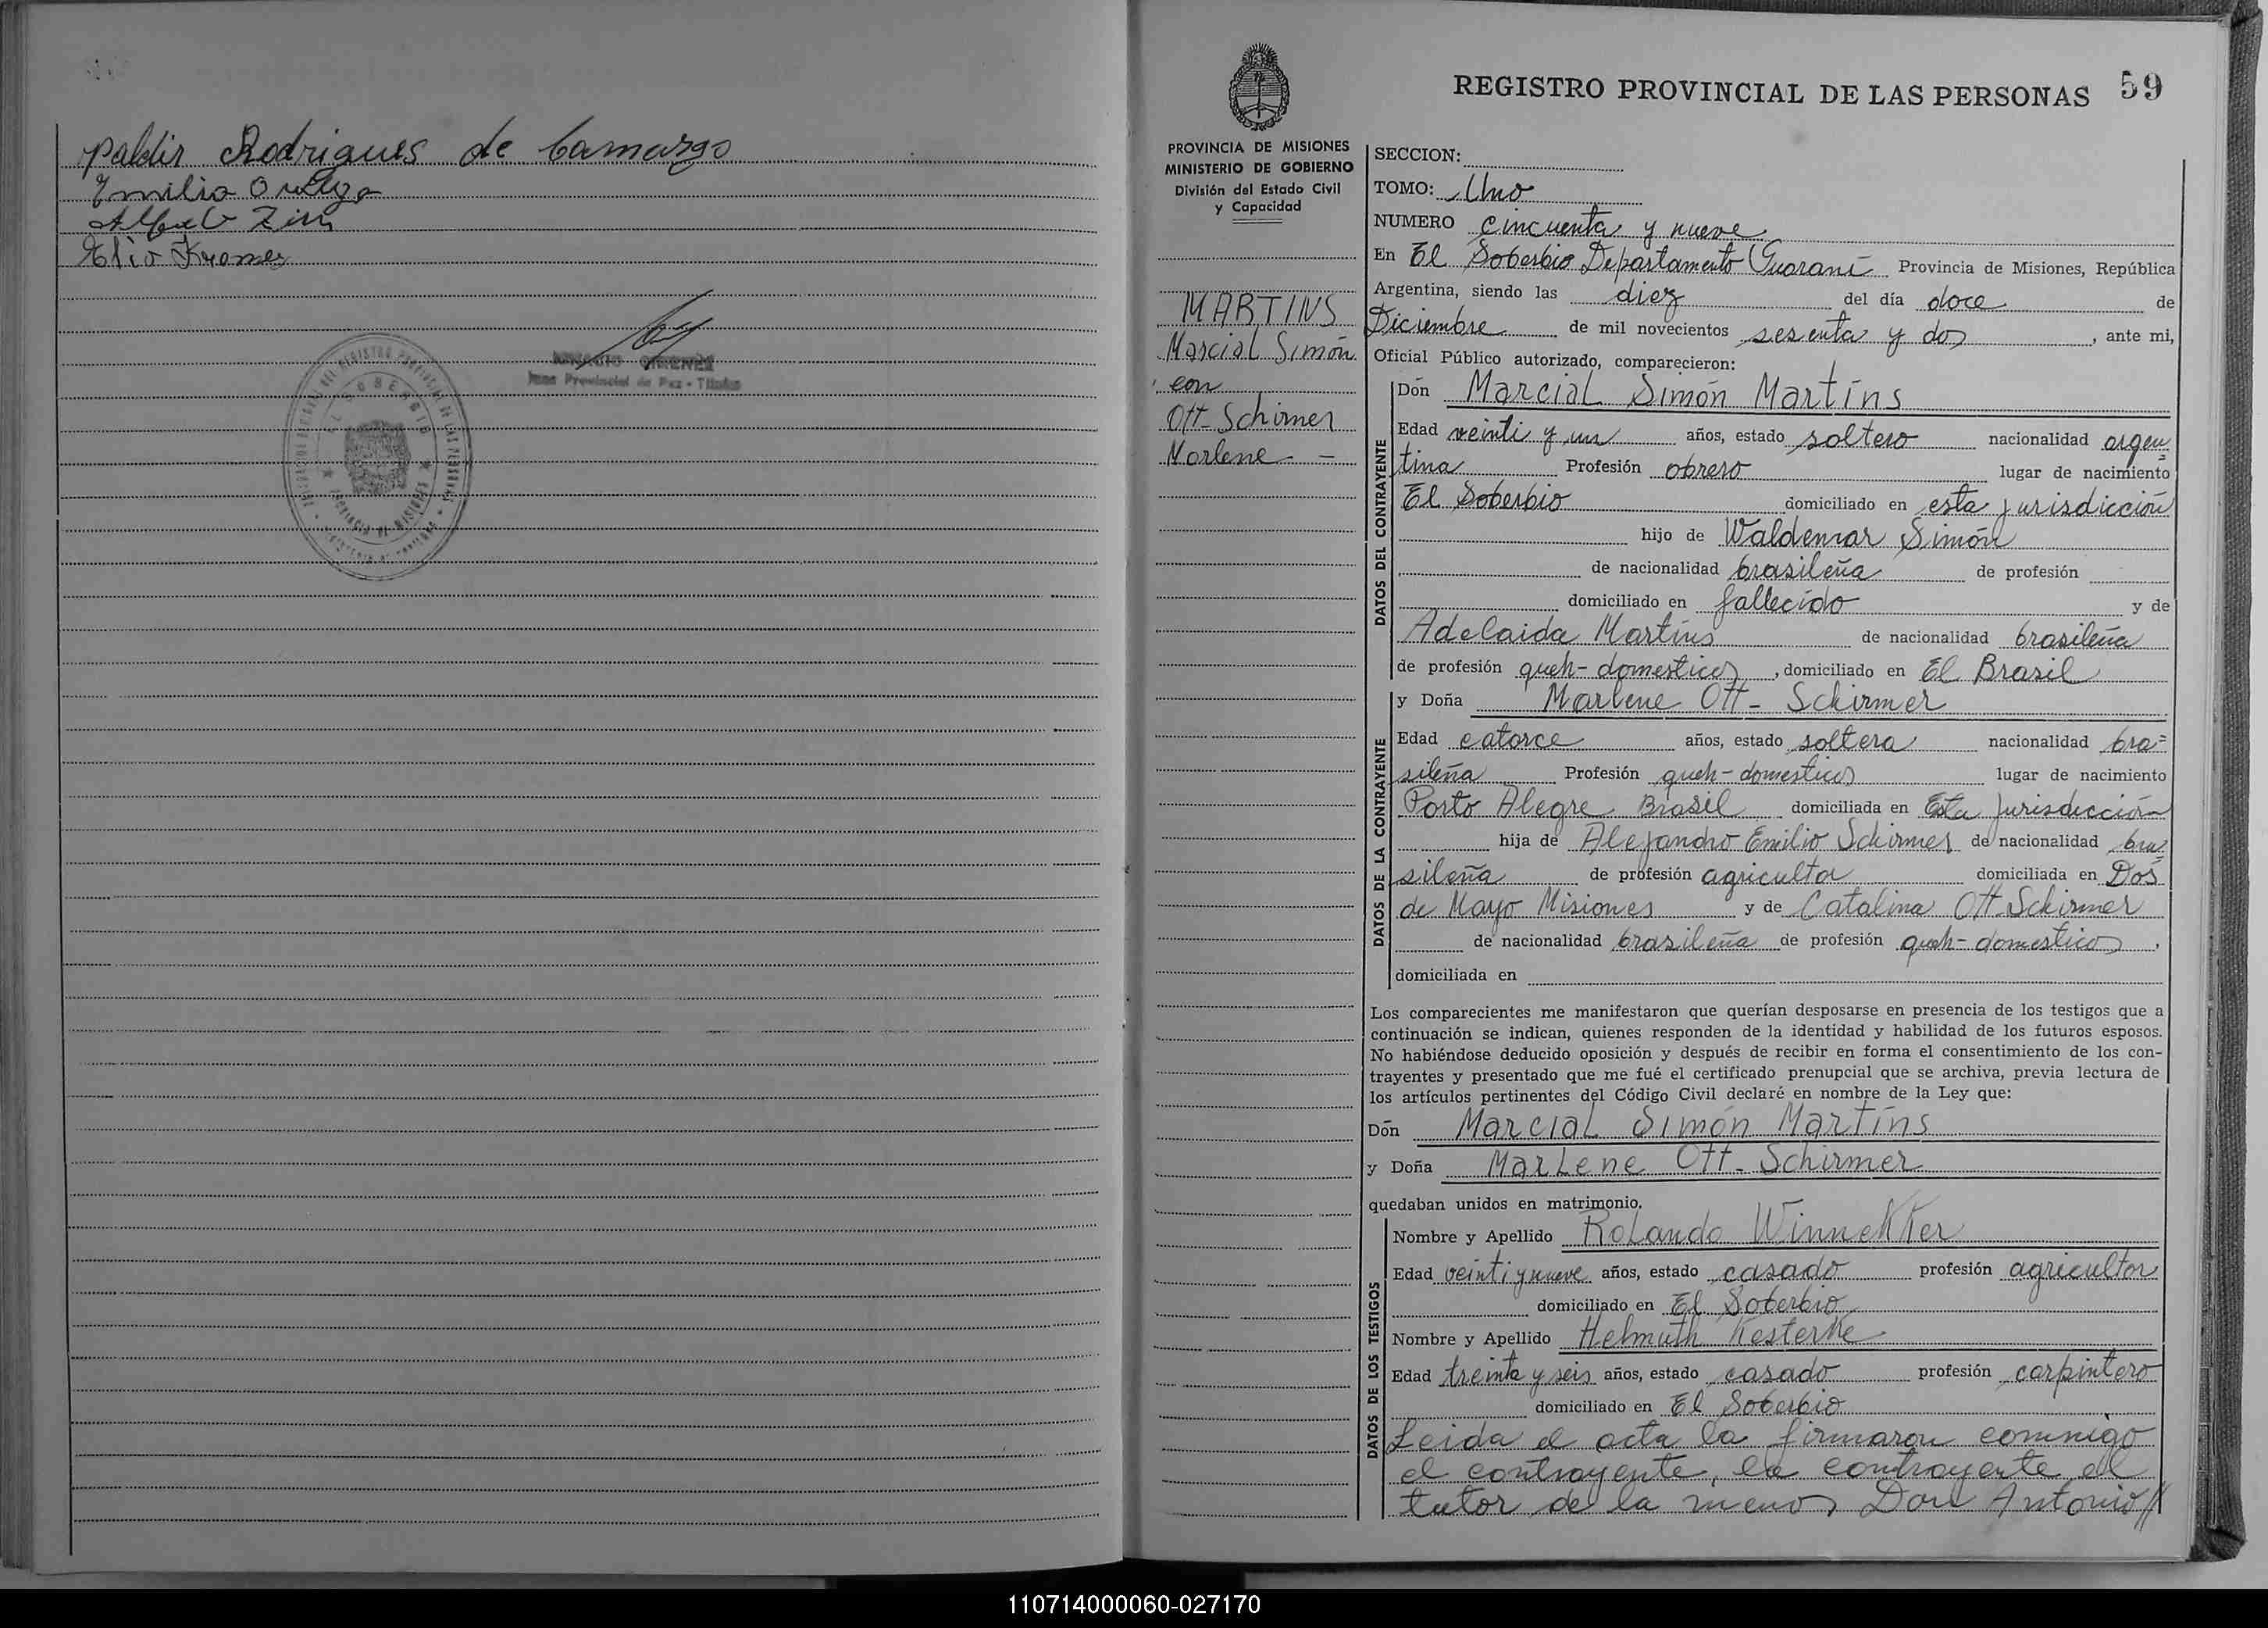 Rodrigues de Camargo
Emilio Ortega
Elio Kramer
EL SOBERBIO
PROVINCIA DE MISIONES
Juez Provincial de Paz - Titular
REGISTRO PROVINCIAL DE LAS PERSONAS 59
PROVINCIA DE MISIONES
MINISTERIO DE GOBIERNO
División del Estado Civil
y Capacidad
MARTINS
Marcial Simón
con
Ott-Schirmer
Marlene -
SECCION:
TOMO: Uno
NUMERO cincuenta y nueve
En El Soberbio Departamento Guaraní Provincia de Misiones, República
Argentina, siendo las diez del día doce de
Diciembre de mil novecientos sesenta y dos, ante mi,
Oficial Público autorizado, comparecieron:
DATOS DEL CONTRAYENTE
Dón Marcial Simón Martíns
Edad veinti y un años, estado soltero nacionalidad argen=
tina Profesión obrero lugar de nacimiento
El Soberbio domiciliado en esta jurisdicción
hijo de Waldemar Simón
de nacionalidad brasileña de profesión
domiciliado en fallecido y de
Adelaida Martíns de nacionalidad brasileña
de profesión queh-domesticos, domiciliado en El Brasil
DATOS DE LA CONTRAYENTE
y Doña Marlene Ott-Schirmer
Edad catorce años, estado soltera nacionalidad bra=
sileña Profesión queh-domésticos lugar de nacimiento
Porto Alegre Brasil domiciliada en Esta Jurisdicción
hija de Alejandro Emilio Schirmer de nacionalidad bra=
sileña de profesión agricultor domiciliada en Dos
de Mayo Misiones y de Catalina Ott-Schirmer
de nacionalidad brasileña de profesión queh-domesticos,
domiciliada en
Los comparecientes me manifestaron que querían desposarse en presencia de los testigos que a
continuación se indican, quienes responden de la identidad y habilidad de los futuros esposos.
No habiéndose deducido oposición y después de recibir en forma el consentimiento de los con-
trayentes y presentado que me fué el certificado prenupcial que se archiva, previa lectura de
los artículos pertinentes del Código Civil declaré en nombre de la Ley que:
Dón Marcial Simón Martíns
y Doña Marlene Ott-Schirmer
quedaban unidos en matrimonio.
DATOS DE LOS TESTIGOS
Nombre y Apellido Rolando Winnekker
Edad veinti y nueve años, estado casado profesión agricultor
domiciliado en El Soberbio
Nombre y Apellido Helmuth Kesterke
Edad treinta y seis años, estado casado profesión carpintero
domiciliado en El Soberbio
Leida el acta la firmaron conmigo
el contrayente, la contrayente el
tutor de la menor Don Antonio//
110714000060-027170